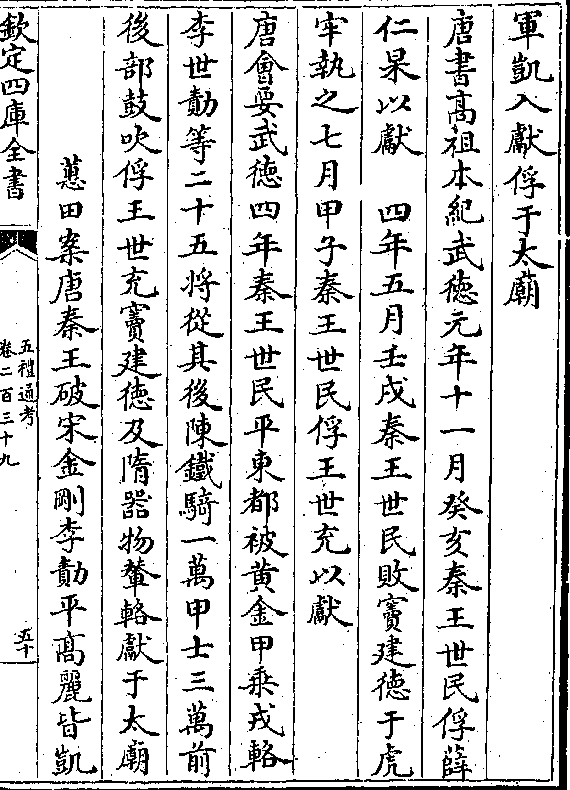 軍凱入獻俘于太廟
唐書髙祖本紀武徳元年十一月癸亥秦王世民俘薛
仁杲以獻　四年五月壬戌秦王世民敗竇建徳于虎
牢執之七月甲子秦王世民俘王世充以獻
唐會要武徳四年秦王世民平東都被黄金甲乗戎輅
李世勣等二十五将從其後陳鐵騎一萬甲士三萬前
後部鼓吹俘王世充竇建徳及隋器物輦輅獻于太廟
蕙田案唐秦王破宋金剛李勣平髙麗皆凱
欽定四庫全書
五禮通考
卷二百三十九
五十